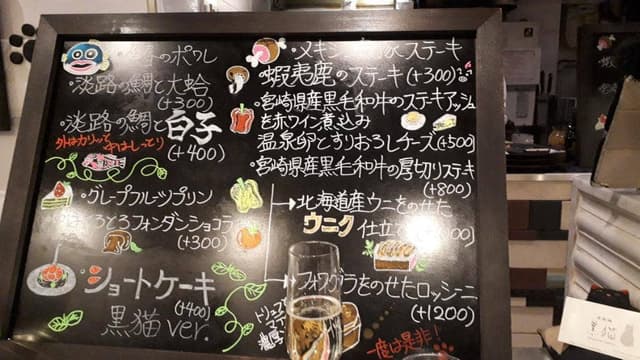 のポワレ
・淡路の鯛と大蛤
(+300)
・淡路の鯛と白子
(+400)
外はカリッと
中はしっとり
・グレープフルーツプリン
とろフォンダンショコラ
(+300)
・ショートケーキ
(+400)
黒猫 ver.
・メキシ ステーキ
・蝦夷鹿のステーキ(+300)
・宮崎県産黒毛和牛のステーキアッシェ
を赤ワイン煮込み
温泉卵とすりおろしチーズ(+500)
・宮崎県産黒毛和牛の厚切りステーキ
(+800)
→・北海道産ウニをのせた
ウニク仕立て
→・フォワグラをのせたロッシーニ
(+1200)
一度は是非!
黒猫